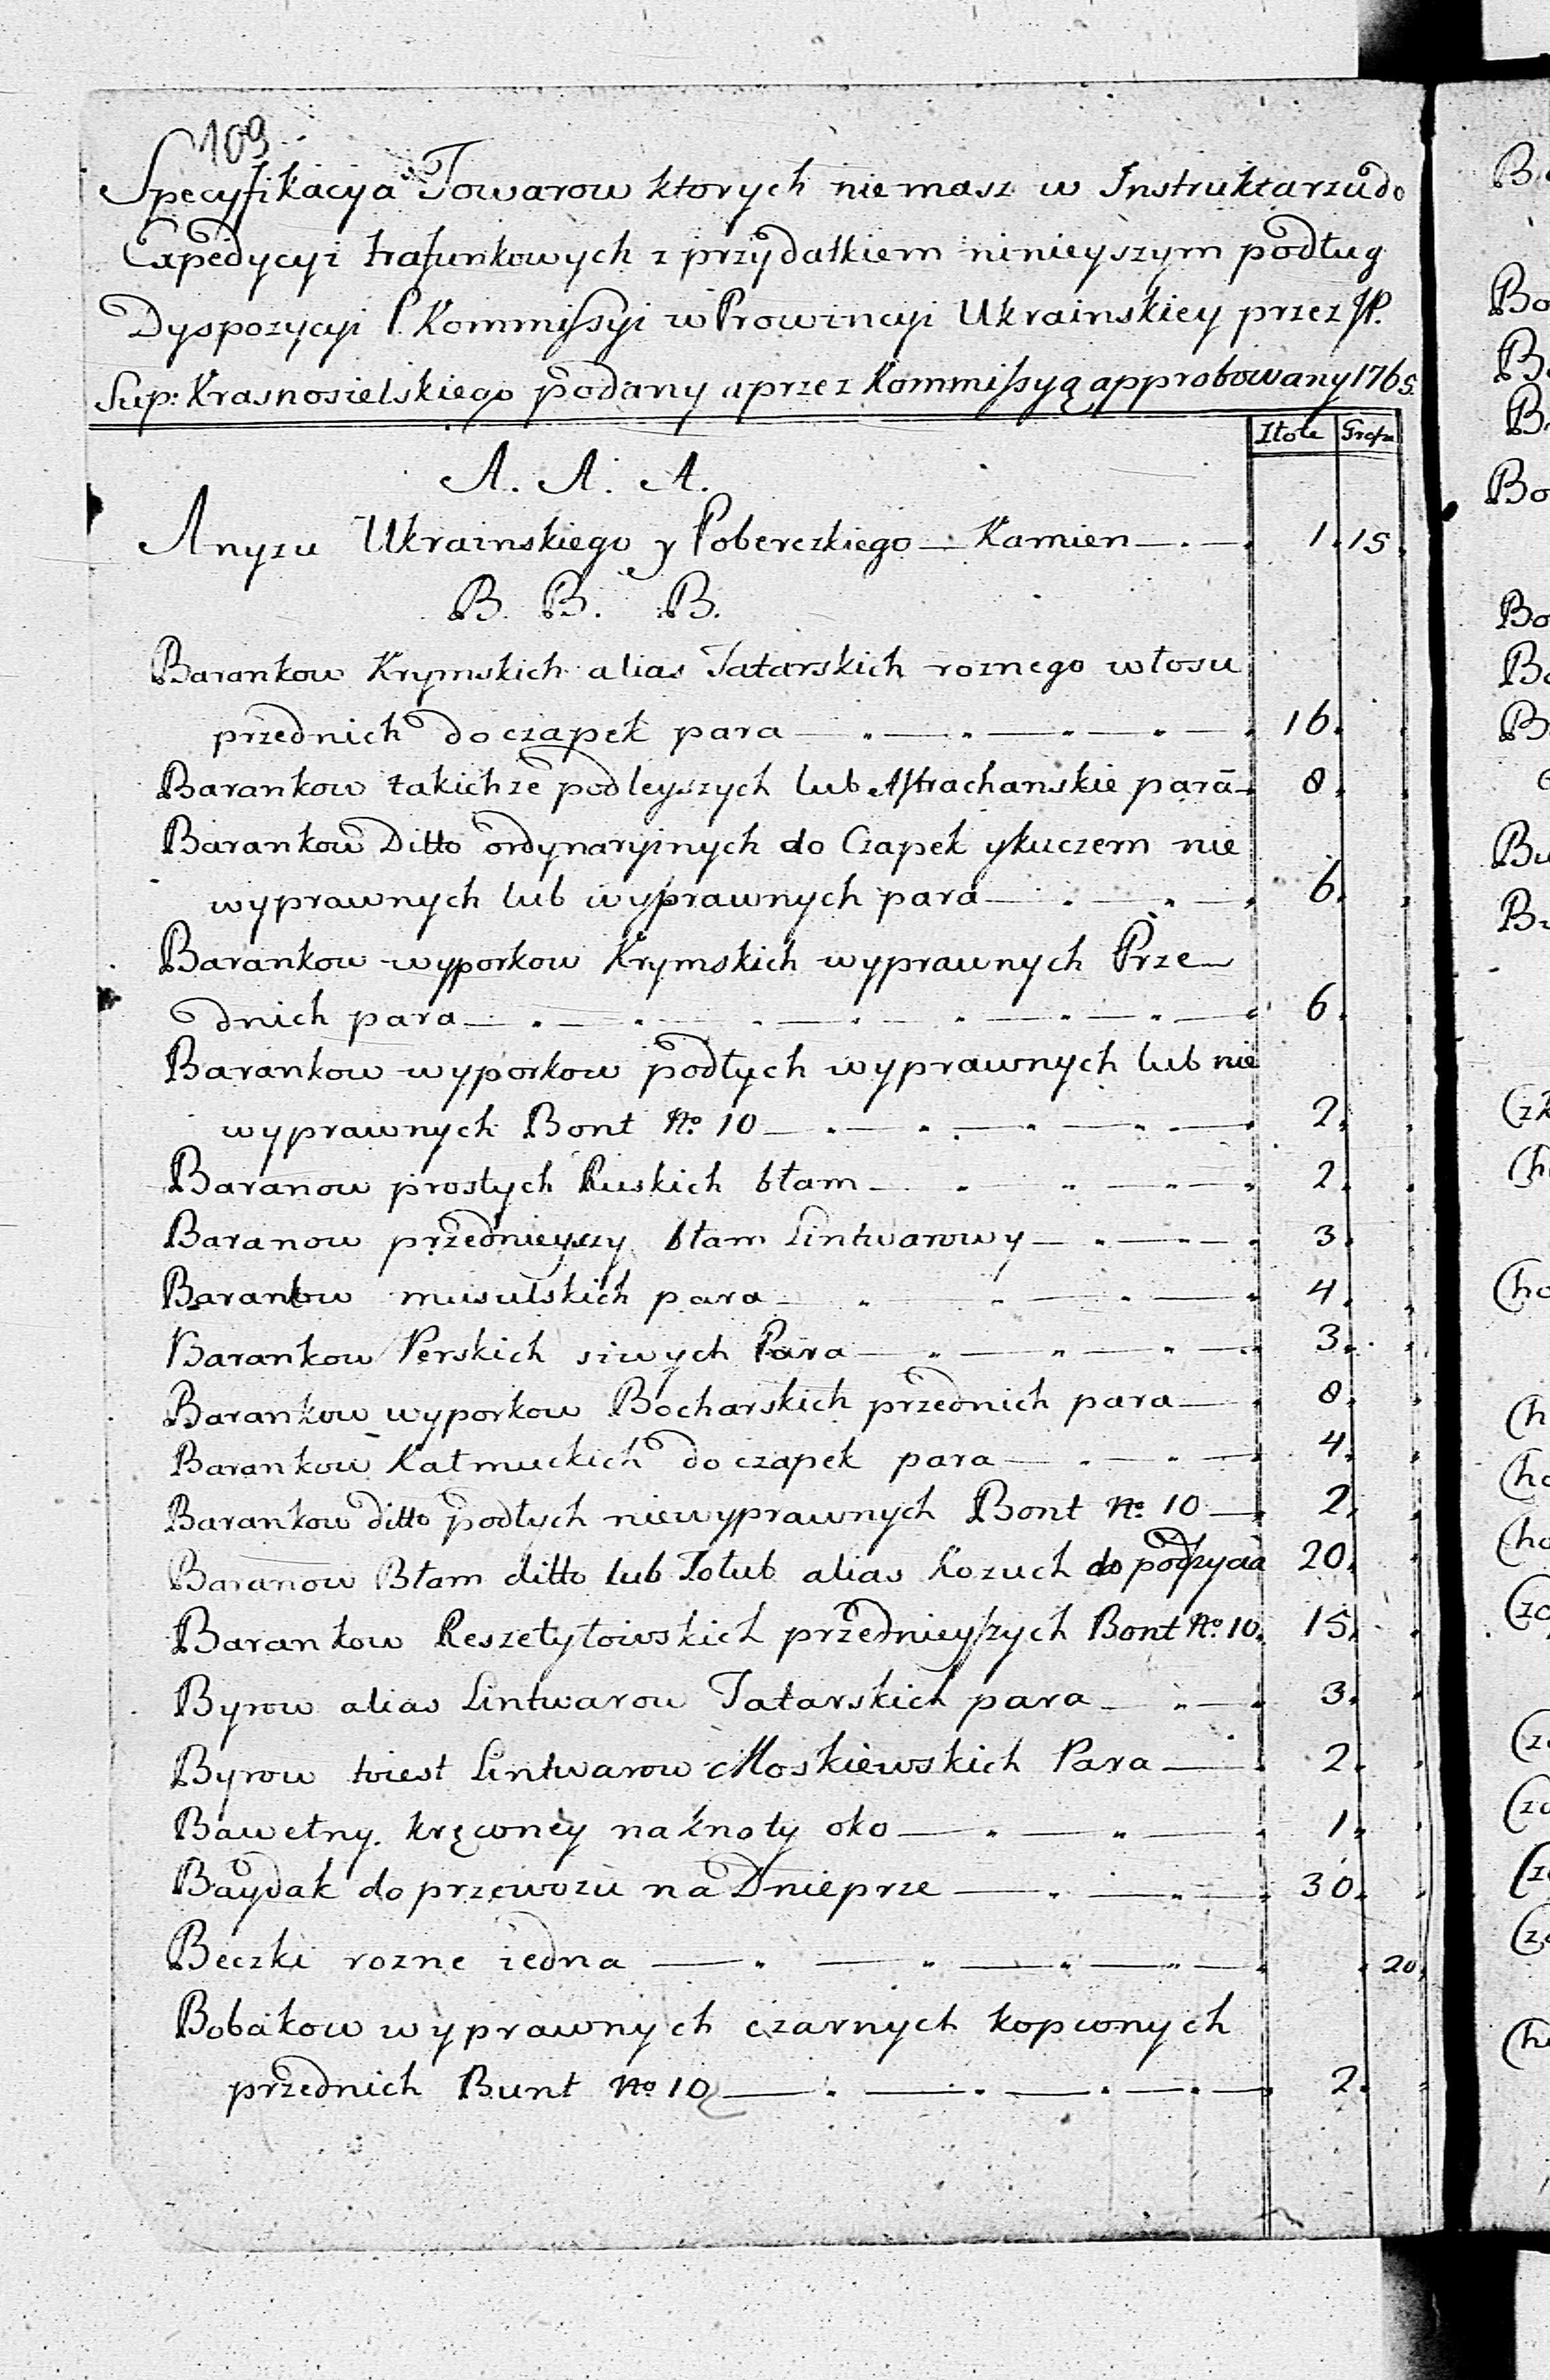 109
Specyfikacya Towarow ktorych niemasz w Instruktarzu do
Expedycyi trafunkowych z przydatkiem ninieyszym podług
Dyspozycyi P. Kommissyi w Prowincyi Ukrainskiey przez JP.
Sup: Krasnosielskiego podany a przez Kommissyą approbowany 1765.
Złote Grosze
A. A. A.
Anyzu Ukrainskiego y Pobereżkiego Kamien 1. 15.
B. B. B.
Barankow Krymskich alias Tatarskich roznego włosu
przednich do czapek para 16.
Barankow takichze podleyszych lub Astrachanskie para 8.
Barankow Ditto ordynaryinych do Czapek y kuczem nie
wyprawnych lub wyprawnych para 6.
Barankow wyporkow Krymskich wyprawnych Prze
dnich para 6.
Barankow wyporkow podłych wyprawnych lub nie
wyprawnych Bont No. 10 2.
Baranow prostych Ruskich błam 2.
Baranow przednieyszy błam Lintwarowy 3.
Barankow musulskich para 4.
Barankow Perskich siwych Para 3.
Barankow wyporkow Bocharskich przednich para 8.
Barankow Kałmuckich do czapek para 4.
Barankow ditto podłych niewyprawnych Bont No. 10 2.
Baranow Błam ditto lub Tołub alias Kozuch do podszycia 20.
Barankow Reszetyłowskich przednieyszych Bont No. 10. 15.
Byrow alias Lintwarow Tatarskich para 3.
Byrow toiest Lintwarow Moskiewskich Para 2.
Bawełny kręconey na knoty oko 1.
Baydak do przewozu na Dnieprze 30.
Beczki rozne iedna 20.
Bobakow wyprawnych czarnych kopconych
przednich Bunt No. 10 2.